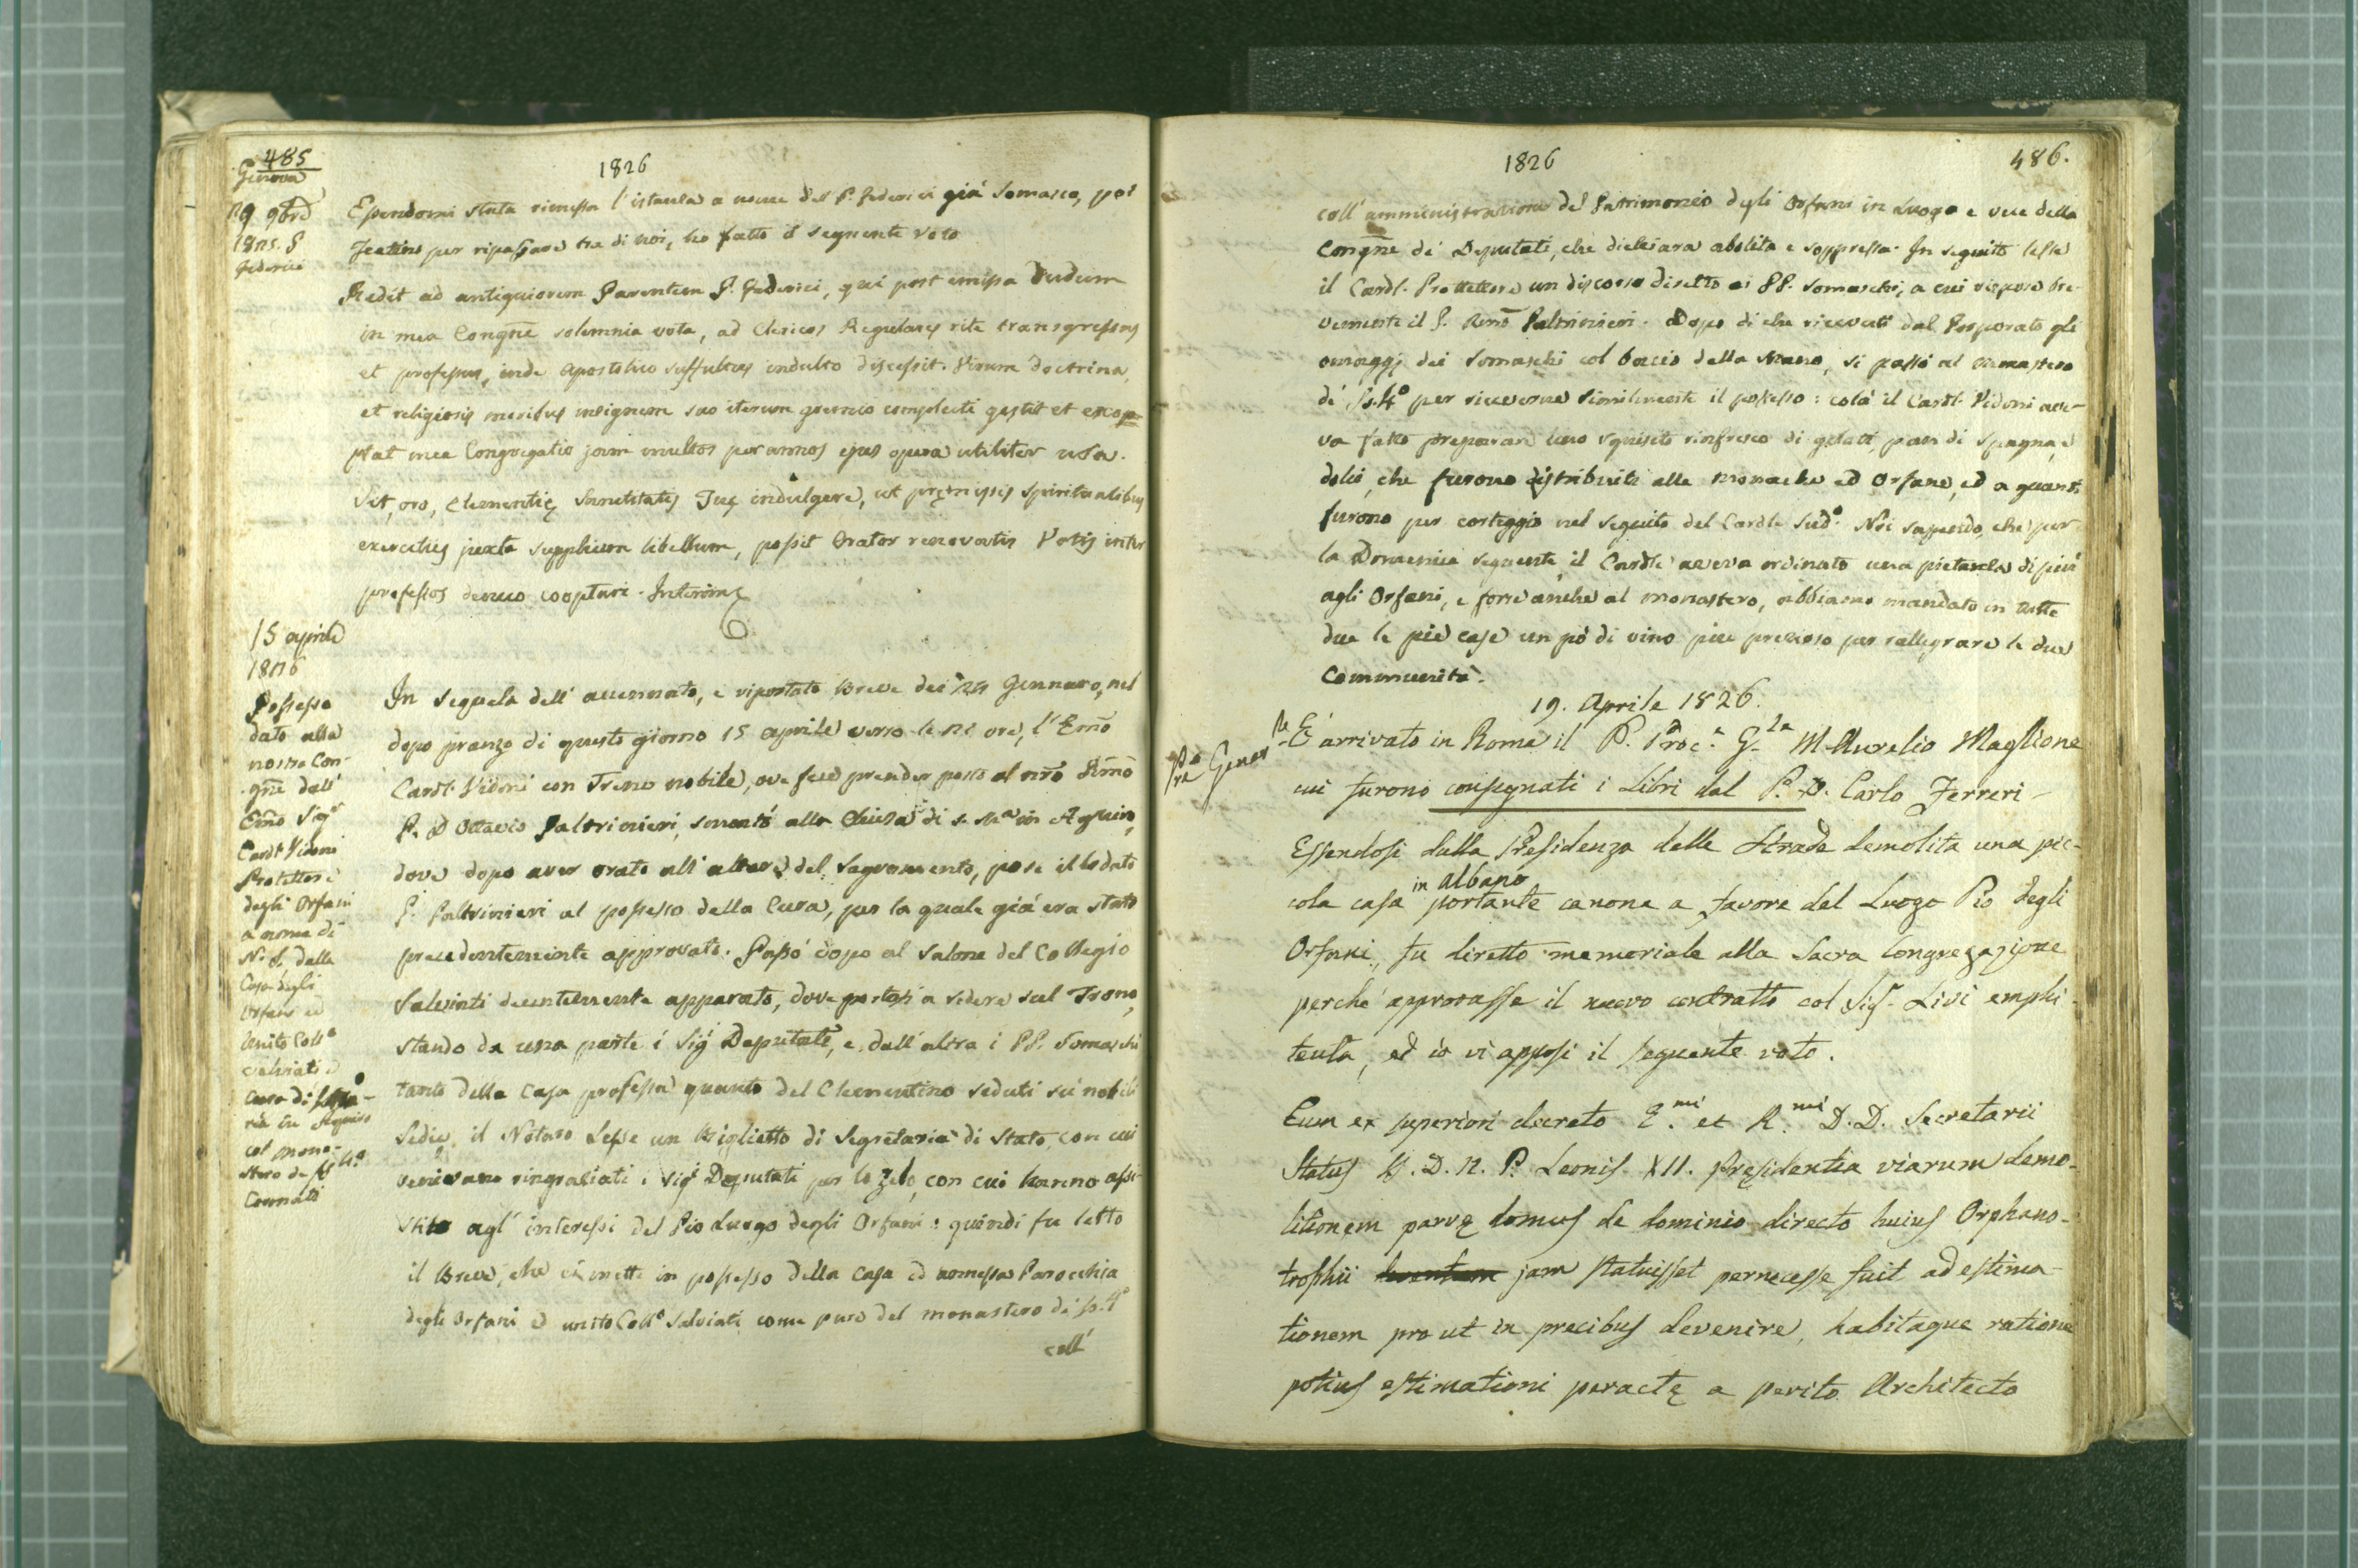 485
1826
Genova
29 9bre
1825. P
Federici
Essendomi stata rimessa l'istanza a nome del P. Federici già Somasco, poi
Teatino per ripassare tra di noi, ho fatto il seguente voto
Redit ad antiquiorem Parentem P. Federici, qui post emissa dudum
in mea Congne solemnia vota, ad Clericos Regulares rite transgressus
et professus, inde Apostolico suffultus indulto discessit. Virum doctrina,
et religiosis moribus insignem suo iterum gremio complecti gestit et exop-
ptat mea Congregatio jam multos per annos ejus opera utiliter usa.
Sit, oro, Clementię Sanctitatis Tuę indulgere, ut pręmissis spiritualibus
exercitiis juxta supplicem libellum, possit Orator renovatis Votis inter
professos denuo cooptari. Interim
15 aprile
1826
Possesso
dato alla
nostra Con-
gne dall'
Emo Sigr
Cardl Vidoni
Protettore
degli Orfani
a nome di
N. S. della
Casa degli
Orfani ed
unito Collo
Salviati e
Cura di
ria in Aquiro
col mona-
stero de SS. 4o
Coronati
In seguela dell' accennato, e riportato Breve dei 24 Gennaro, nel
dopo pranzo di questo giorno 15 aprile verso le 21 ore, l'Emo
Cardl. Vidoni con Treno nobile, ove fece prender posto al nro Rmo
P. D Ottavio Paltrinieri, smontò alla Chiesa di S. Ma in Aquiro,
dove dopo aver orato all'altare del Sagramento, pose il lodato
P. Paltrinieri al possesso della Cura, per la quale già era stato
precedentemente approvato. Passò dopo al Salone del Collegio
Salviati decentemente apparato, dove postosi a sedere sul Trono,
stando da una parte i Sigi Deputati, e dall'altra i PP. Somaschi
tanto della Casa professa quanto del Clementino seduti su nobili
Sedie, il Notaro lesse un Biglietto di Segretaria di Stato, con cui
venivano ringraziati i Sigi Deputati per lo zelo, con cui hanno assi-
stito agl'interessi del Pio Luogo degli Orfani: quindi fu letto
il Breve, che ci mette in possesso della Casa ed annessa Parocchia
degli Orfani e unito Collo Salviati come pure del monastero di SS. 4o
coll'
1826
486.
coll'amministrazione del Patrimonio degli Orfani in luogo e vece della
Congne di Deputati, che dichiara abolita e soppressa. In seguito lesse
il Cardl. Prottettore un discorso diretto ai PP. Somaschi, a cui rispose bre-
vemente il P. Rmo Paltrinieri. Dopo di che ricevuti dal Porporato gli
omaggi dei Somaschi col bacio della Mano, si passò al monastero
di SS. 4o per riceverne similmente il possesso: colà il Cardl. Vidoni ave-
va fatto preparare uno squisito rinfresco di gelati, pan di Spagna, e
dolci, che furono distribuiti alle monache ed Orfane, ed a quanti
furono per corteggio nel seguito del Cardle sudo. Noi sapendo, che per
la Domenica seguente il Cardle aveva ordinato una pietanza di più
agli Orfani, e forse anche al monastero, abbiamo mandato in tutte
due le pie case un pò di vino più prezioso per rallegrare le due
Communità.
19. Aprile 1826.
È arrivato in Roma il P. Proc.r G.le M. Aurelio Maglione
cui furono consegnati i Libri dal P. D. Carlo Ferreri -
Essendosi dalla Presidenza delle Strade demolita una pic-
cola casa in Albano portante canone a favore del Luogo Pio degli
Orfani, fu diretto memoriale alla Sacra Congregazione
perchè approvasse il nuovo contratto col Sigr. Livi emphi-
teuta, ed io vi apposi il seguente voto.
Cum ex superiori decreto E.mi et R.mi D.D. Secretarii
Status S. D. N. P. Leonis XII. Pręsidentia viarum demo-
litionem parvę domus de dominio directo hujus Orphano-
trophii jam statuisset pernecesse fuit ad estima-
tionem prout in precibus devenire, habitaque ratione
potius estimationi peractę a perito Architecto